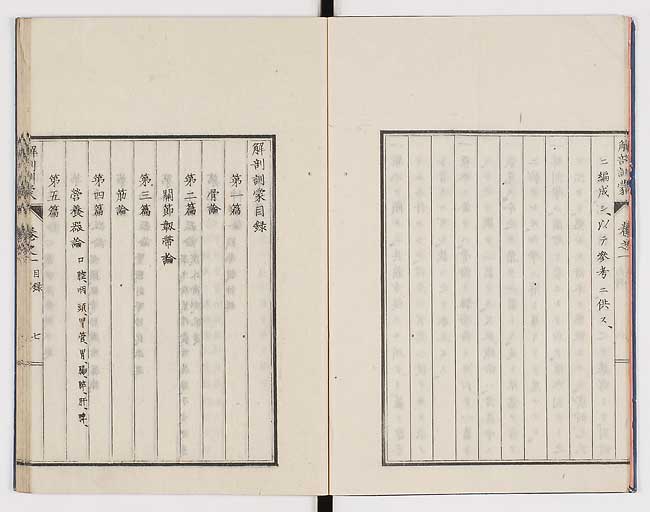 解剖訓蒙 卷之一
ニ編成シ、以テ參考ニ供ス、
解剖訓蒙目録
第一篇
骨論
第二篇
關節靱帶論
第三篇
筋論
第四篇
營養器論 口腔、咽頭、胃管、胃、腸、膵、肝、脾、
第五篇
解剖訓蒙 卷之一 目録 七